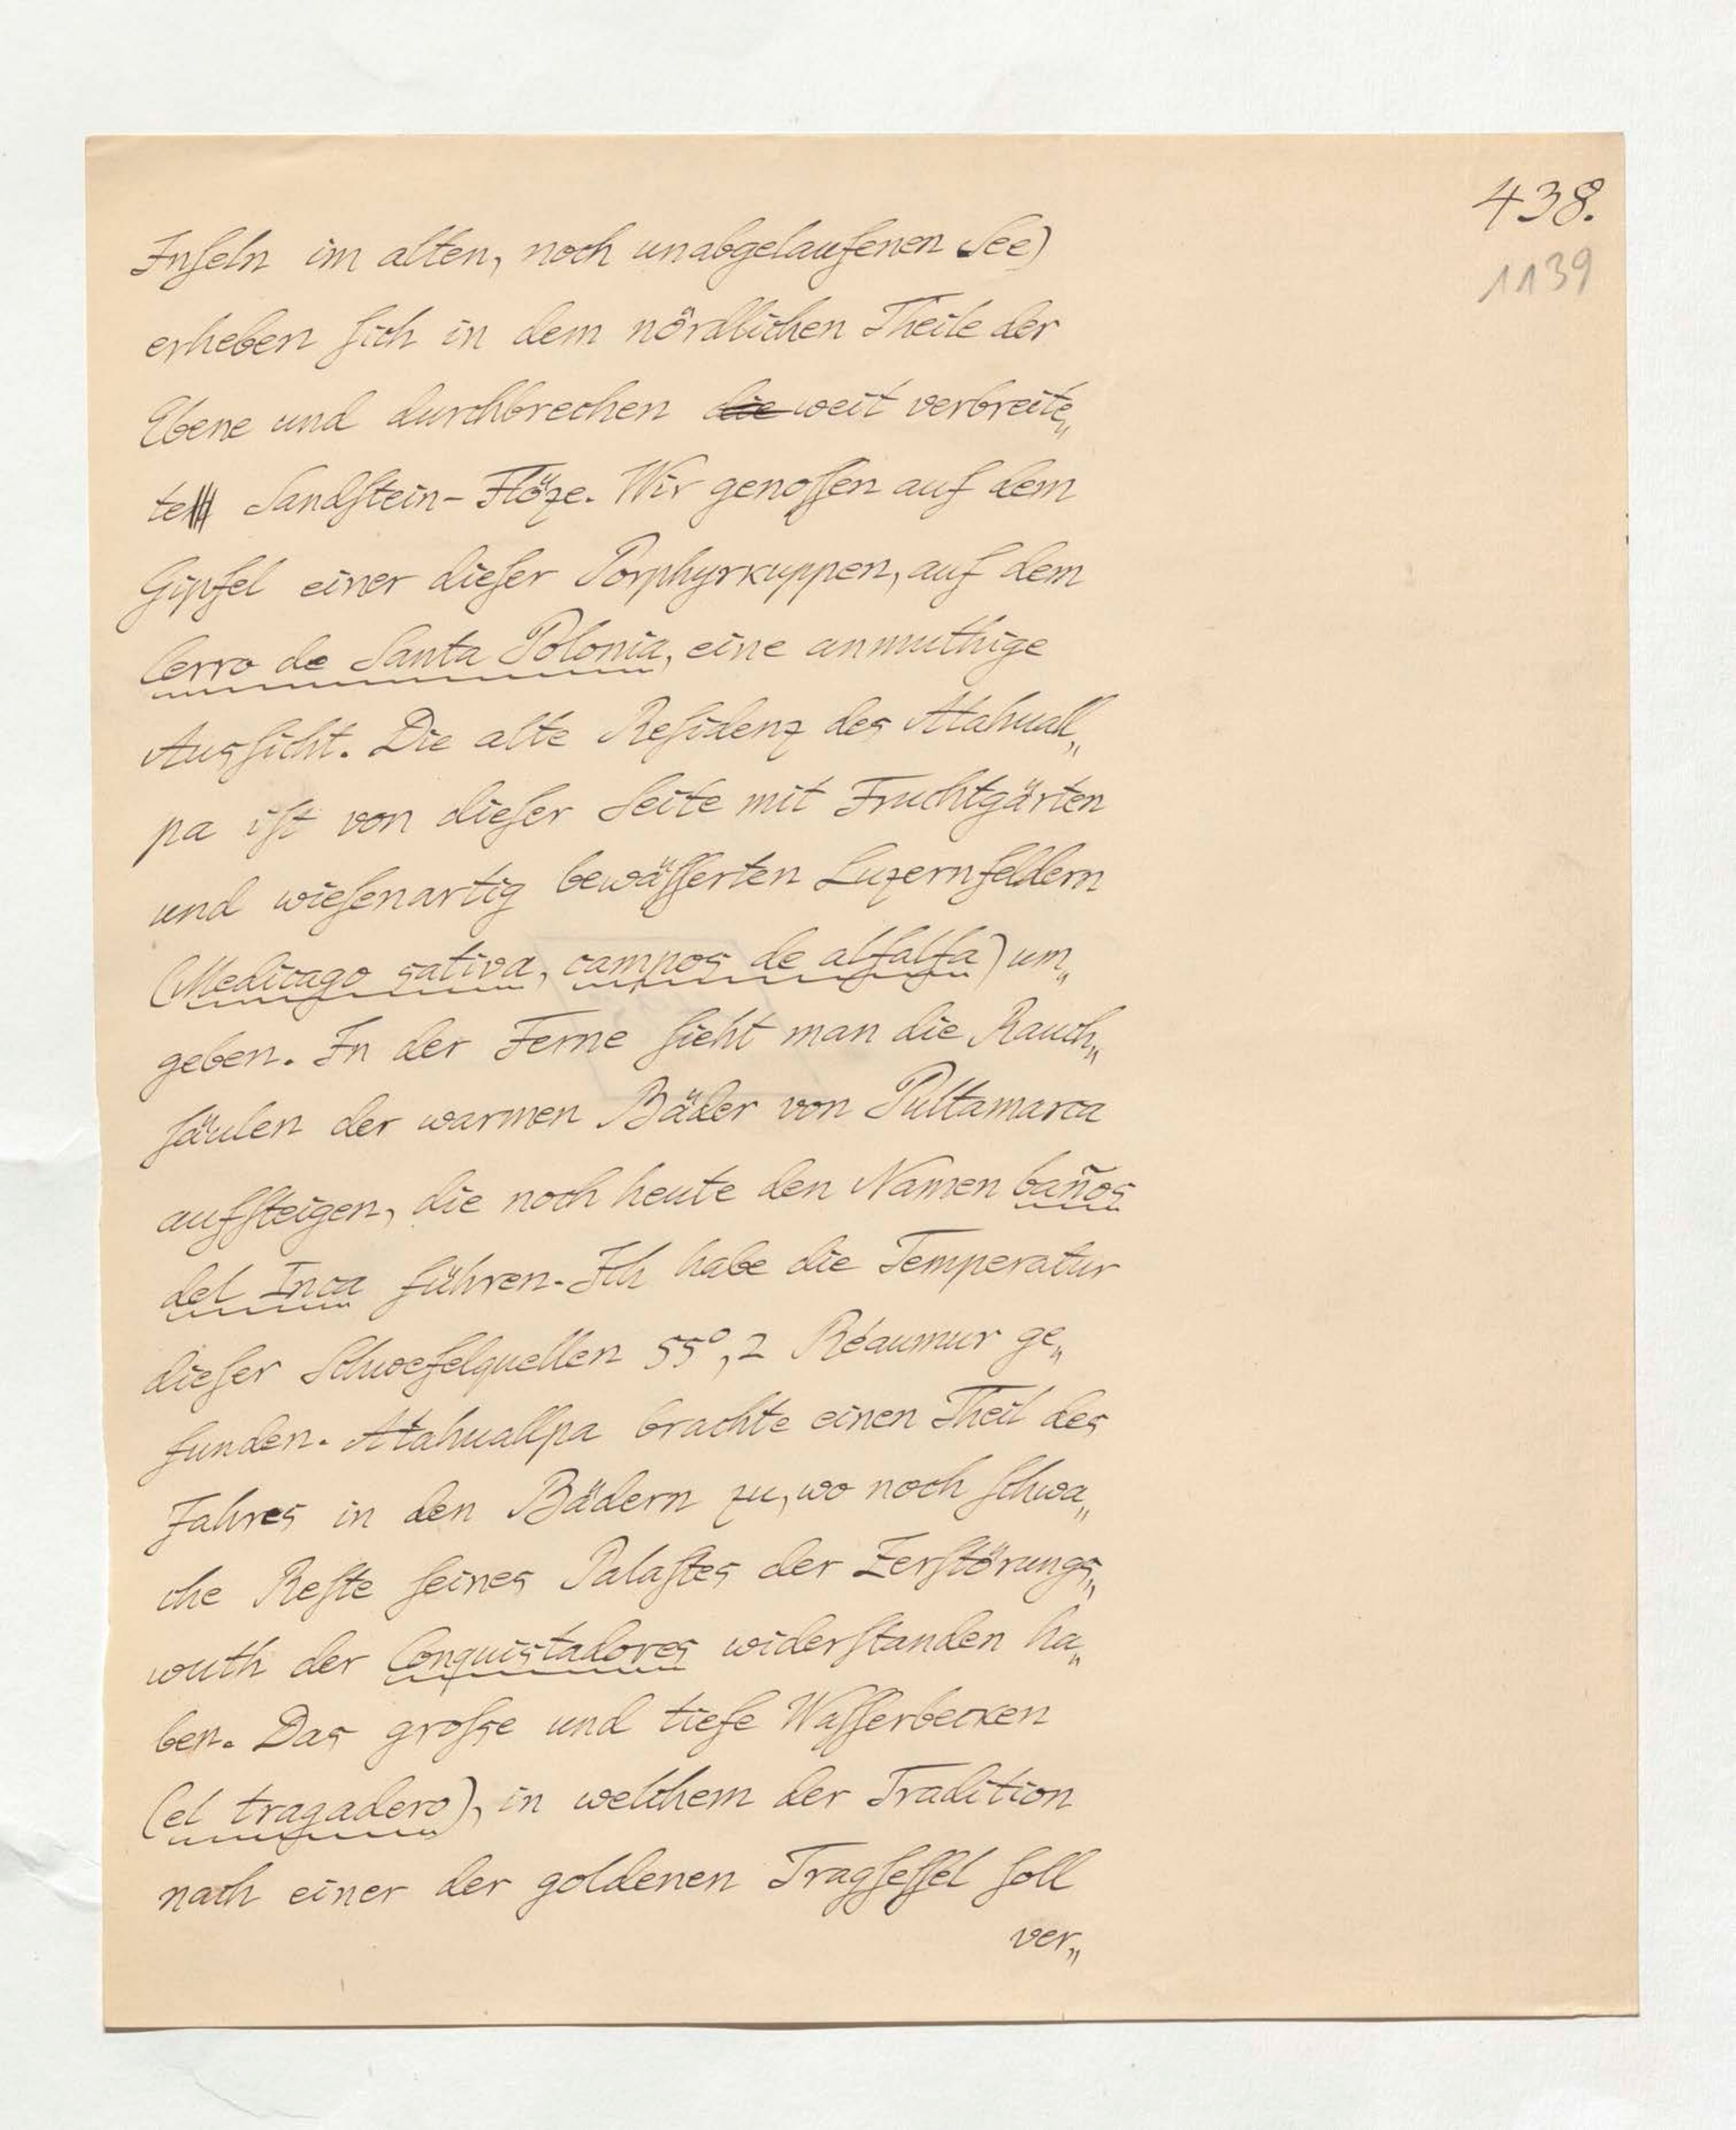 438.
1139
Inſeln im alten, noch unabgelaufenen See)
erheben ſich in dem nördlichen Theile der
Ebene und durchbrechen die weit verbreite„
te Sandſtein-Flöze. Wir genoſſen auf dem
Gipfel einer dieſer Porphyrkuppen, auf dem
Cerro de Santa Polonia, eine anmuthige
Ausſicht. Die alte Reſidenz des Atahuall„
pa iſt von dieſer Seite mit Fruchtgärten
und wieſenartig bewäſſerten Luzernfeldern
(Medicago sativa, campos de alfalfa) um„
geben. In der Ferne ſieht man die Rauch„
ſäulen der warmen Bäder von Pultamarca
aufſteigen, die noch heute den Namen baños
del Inca führen. Ich habe die Temperatur
dieſer Schwefelquellen 55°,2 Réaumur ge„
funden. Atahuallpa brachte einen Theil des
Jahres in den Bädern zu, wo noch ſchwa„
che Reſte ſeines Palaſtes der Zerſtörungs„
wuth der Conquistadores widerſtanden ha„
ben. Das groſse und tiefe Waſſerbecken
(el tragadero), in welchem der Tradition
nach einer der goldenen Tragſeſſel ſoll
ver„